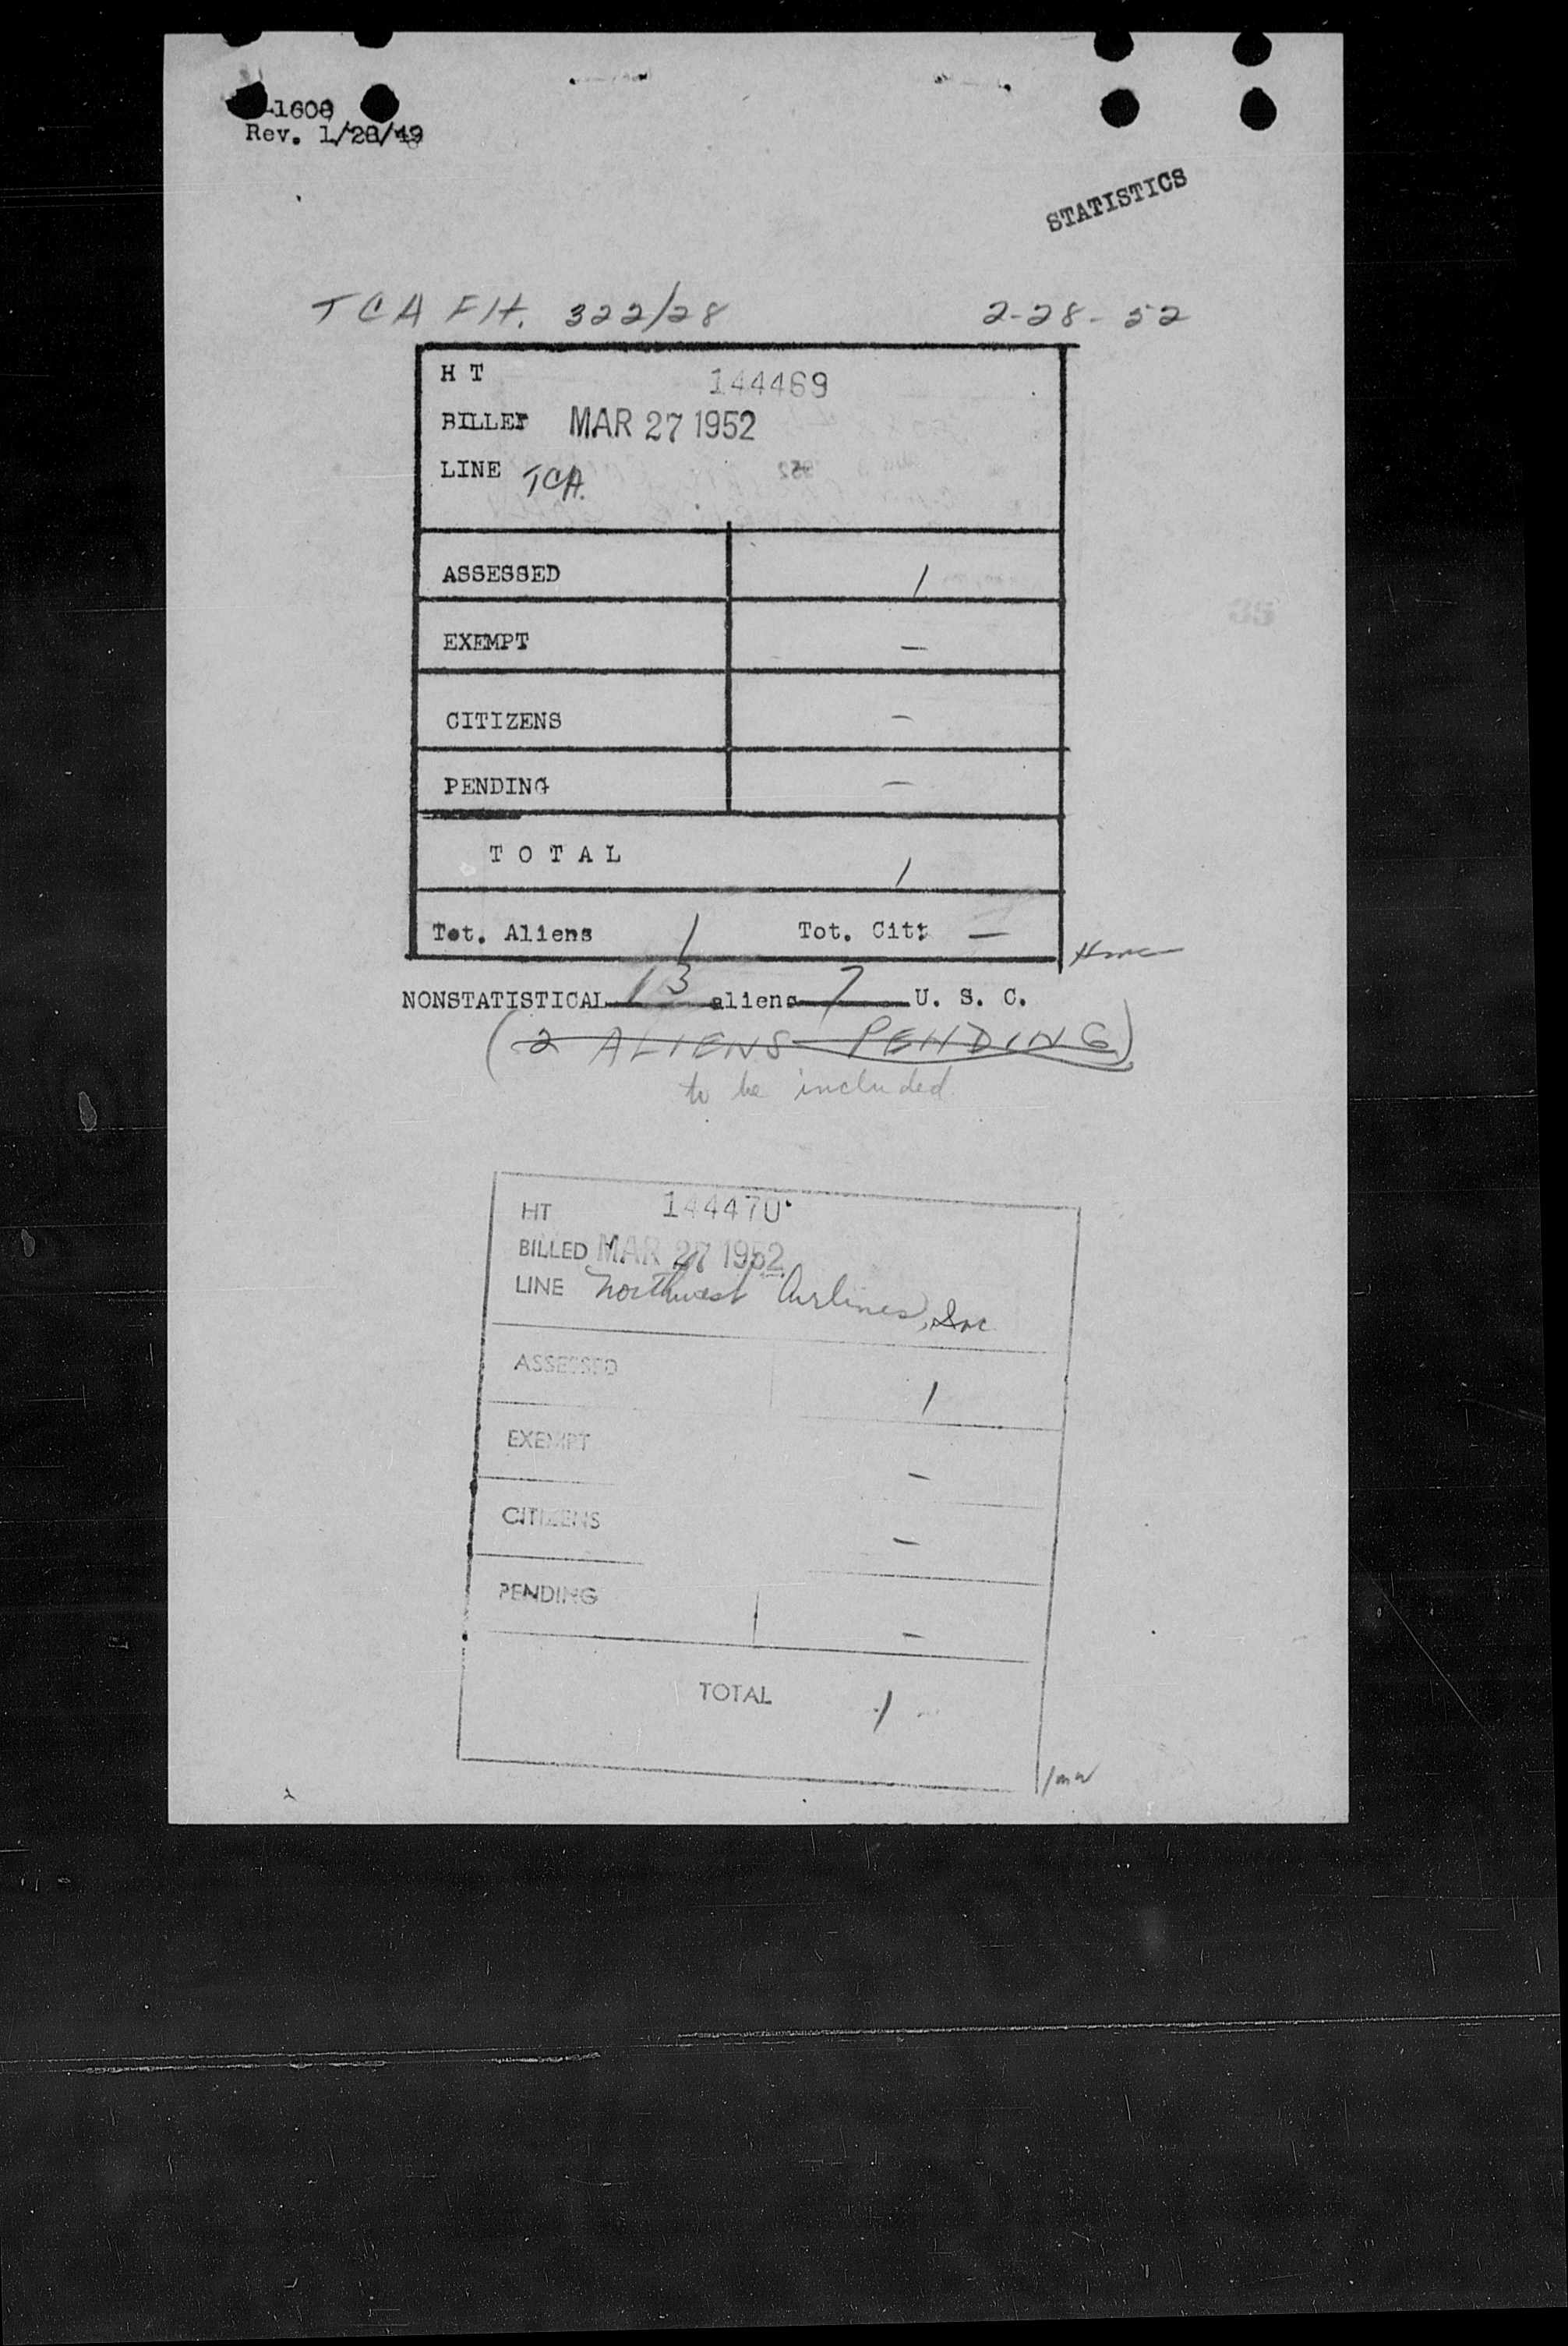 -1608
Rev. 1/28/49
STATISTICS
TCA Flt. 322/28 2-28-52
H T 144469
BILLED MAR 27 1952
LINE TCA
ASSESSED 1
EXEMPT —
CITIZENS —
PENDING —
TOTAL 1
Tot. Aliens 1 Tot. Cit: —
NONSTATISTICAL 13 aliens 7 U. S. C.
(2 ALIENS PENDING)
to be included
HT 144470
BILLED MAR 27 1952
LINE Northwest Airlines, Inc
ASSESSED 1
EXEMPT —
CITIZENS —
PENDING —
TOTAL 1